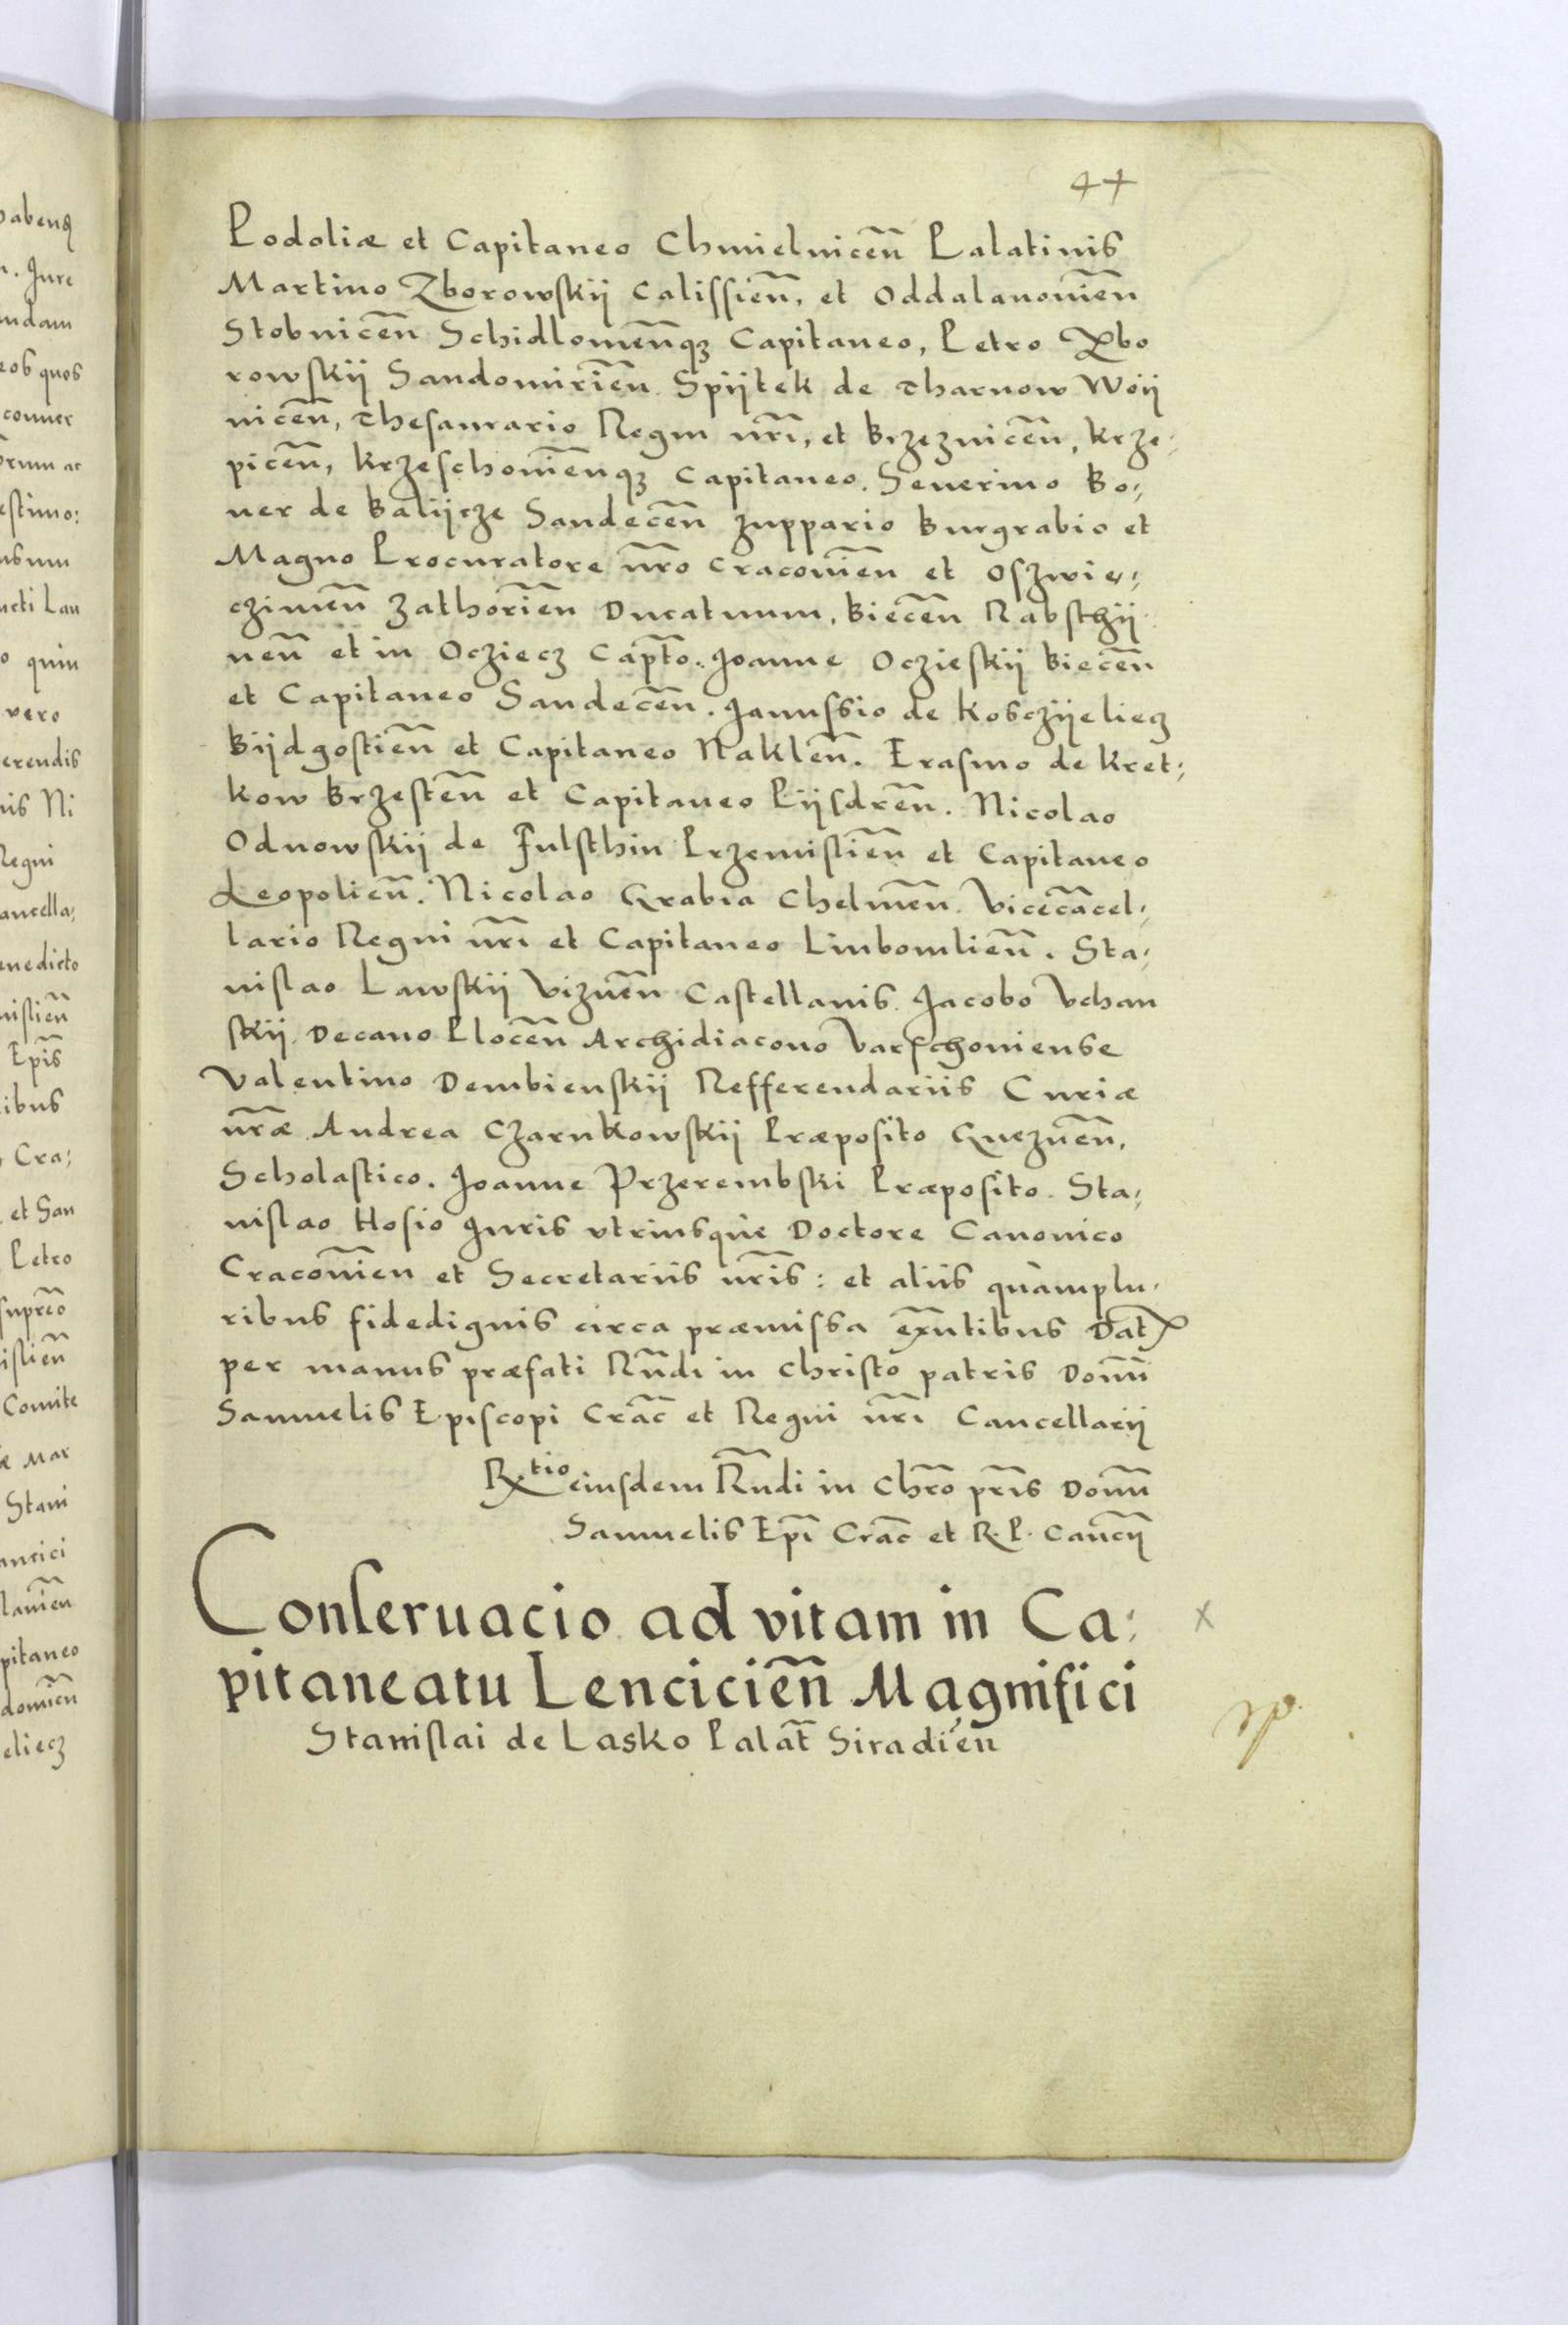 44
Podoliæ et Capitaneo Chmielnicen̄ Palatinis
Martino Zborowskij Calissien̄, et Oddalanouien̄
Stobnicen̄ Schidlouien̄qʒ Capitaneo, Petro Zbo
rowskij Sandomirien̄ Spijtek de Tharnow Woij
nicen̄, Thesaurario Regni nr̄i, et Brzeznicen̄, Krze-
picen̄, Krzeschouien̄qʒ Capitaneo. Seuerino Bo-
ner de Balijcze Sandecen̄ Zuppario Burgrabio et
Magno Procuratore nr̄o Cracouien̄ et Oszwie-
czimen̄ Zathorien̄ Ducatuum, Biecen̄ Rabsthij
nen̄ et in Ocziecz Cap̄to. Joanne Oczieskij Biecen̄
et Capitaneo Sandecen̄. Janussio de Kosczijeliecz
Bijdgostien̄ et Capitaneo Naklen̄. Erasmo de Kret-
kow Brzesten̄ et Capitaneo Pijsdren̄. Nicolao
Odnowskij de Fulsthin Przemislien̄ et Capitaneo
Leopolien̄. Nicolao Grabia Chelmen̄. Vicecācel-
lario Regni nr̄i et Capitaneo Liubomlien̄. Sta-
nislao Lawskij Viznen̄ Castellanis. Jacobo Vchan
skij Decano Plocen̄ Archidiacono Varschouiense
Valentino Dembienskij Refferendariis Curiæ
nr̄æ Andrea Czarnkowskij Præposito Gneznen̄,
Scholastico. Joanne Przerembski Præposito. Sta-
nislao Hosio Juris vtriusque Doctore Canonico
Cracouien̄ et Secretariis nr̄is: et aliis quàmplu-
ribus fidedignis circa præmissa ex̄ntibus Dat
per manus præfati Rn̄di in Christo patris Domn̄i
Samuelis Episcopi Crac̄ et Regni nr̄i Cancellarij
Rtio eiusdem Rn̄di in Chr̄o pr̄is Domn̄i
Samuelis Ep̄i Crac̄ et R. P. Canc̄ij
Conseruacio ad vitam in Ca-
pitaneatu Lencicien̄ Magnifici
Stanislai de Lasko Palat̄ Siradien̄